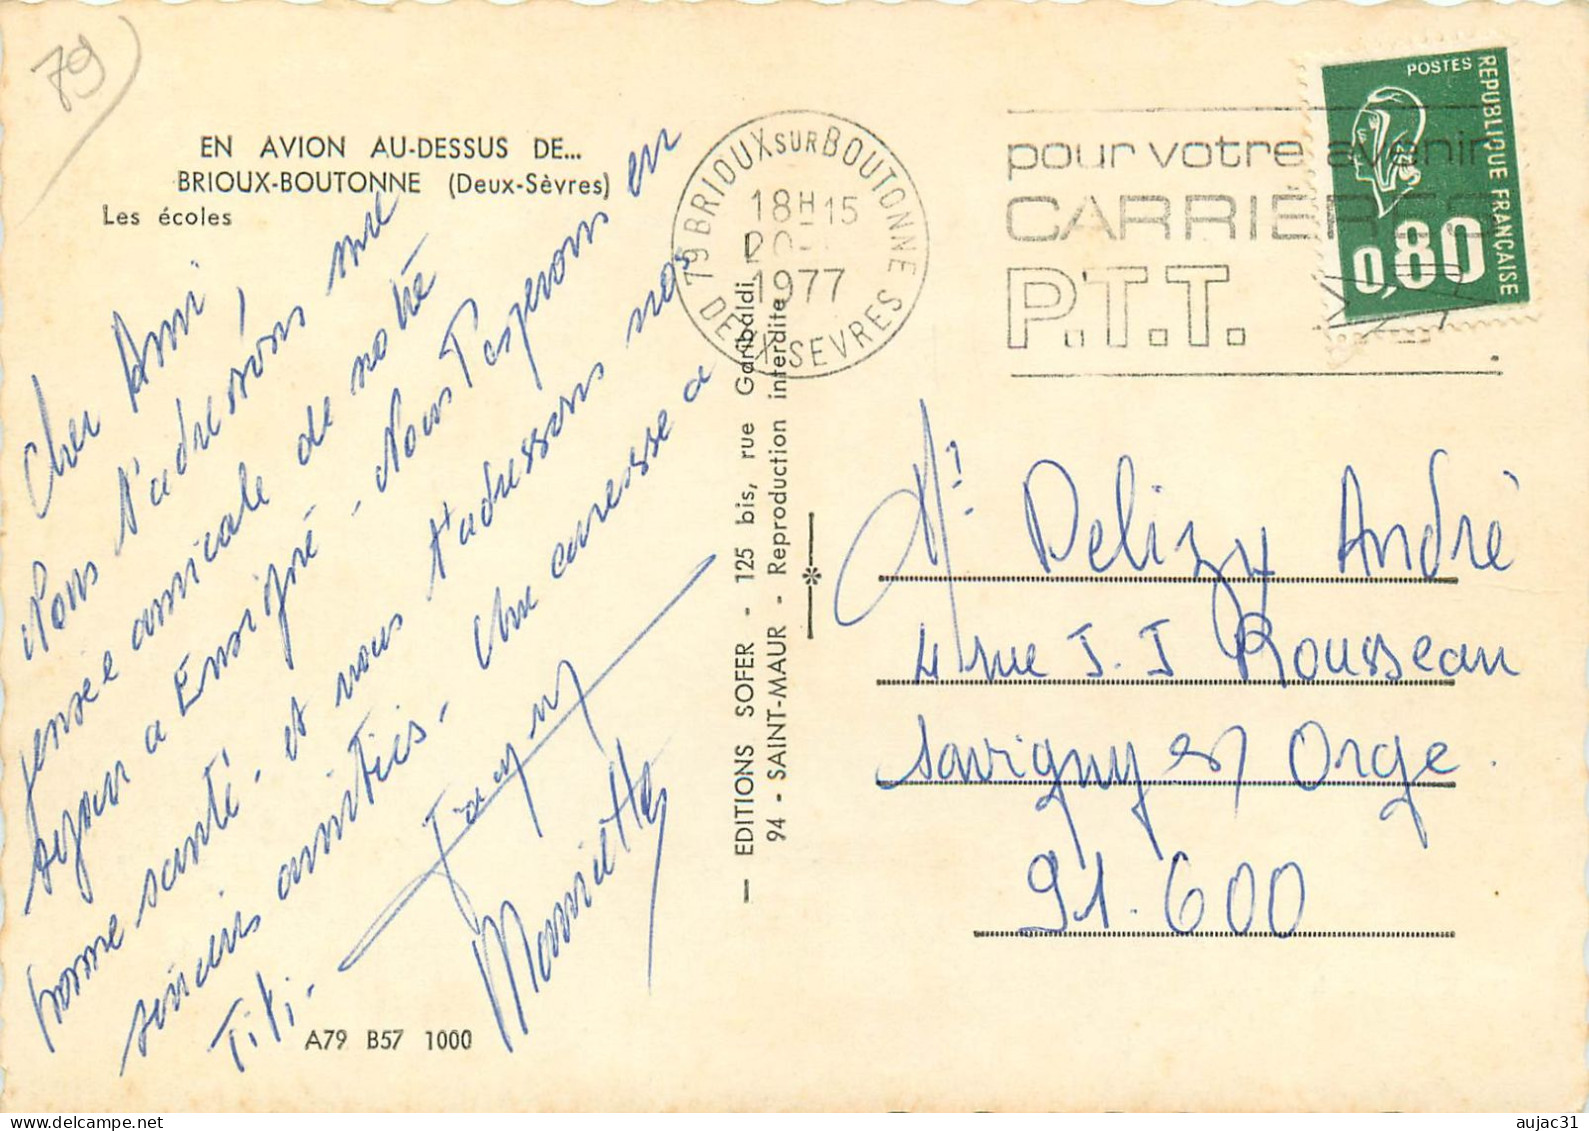 79
EN AVION AU-DESSUS DE...
BRIOUX-BOUTONNE (Deux-Sèvres)
Les écoles
Cher Ami,
Nous t'adressons une
pensée amicale de notre
séjour a Ensigné - Nous t'esperons en
bonne santé - et nous t'adressons nos
amitiés - Une caresse a
Titi -
Mauricette
A79 B57 1000
— EDITIONS SOFER - 125 bis, rue Garibaldi,
94 - SAINT-MAUR - Reproduction interdite
79 BRIOUX SUR BOUTONNE
18H-15
1977
DEUX SEVRES
pour votre avenir
CARRIERES
P.T.T.
POSTES
REPUBLIQUE FRANÇAISE
0,80
Mr Delizy André
4 rue J.J Rousseau
Savigny s/ Orge.
91.600
aujac31